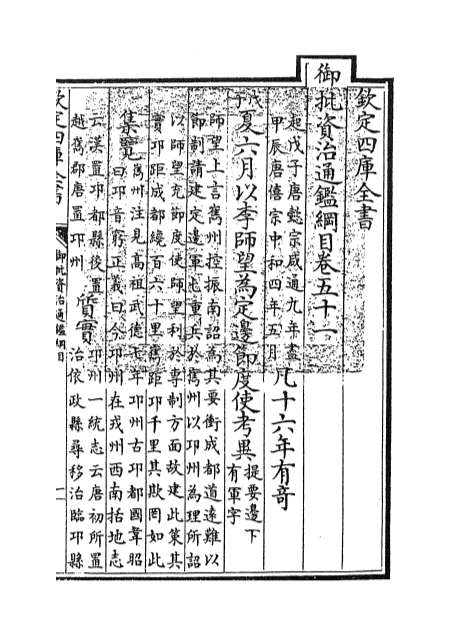 欽定四庫全書
御批資治通鑑綱目卷五十一
起戊子唐懿宗咸通九年盡
甲辰唐僖宗中和四年五月
凡十六年有奇
戊子
夏六月以李師望為定邊節度使考異
提要邊下
有軍字
師望上言巂州控振南詔為其要衝成都道遠難以
節制請建定邊軍屯重兵於巂州以邛州為理所詔
以師望充節度使師望利於專制方面故建此策其
實邛距成都纔百六十里巂距邛千里其欺罔如此
集覽
巂州注見高祖武德七年邛州古邛都國韋昭
曰邛音窮正義曰今邛州在戎州西南括地志
云漢置邛都縣後置
越巂郡唐置邛州
質實
邛州一統志云唐初所置
治依政縣尋移治臨邛縣
欽定四庫全書
御批資治通鑑綱目
一